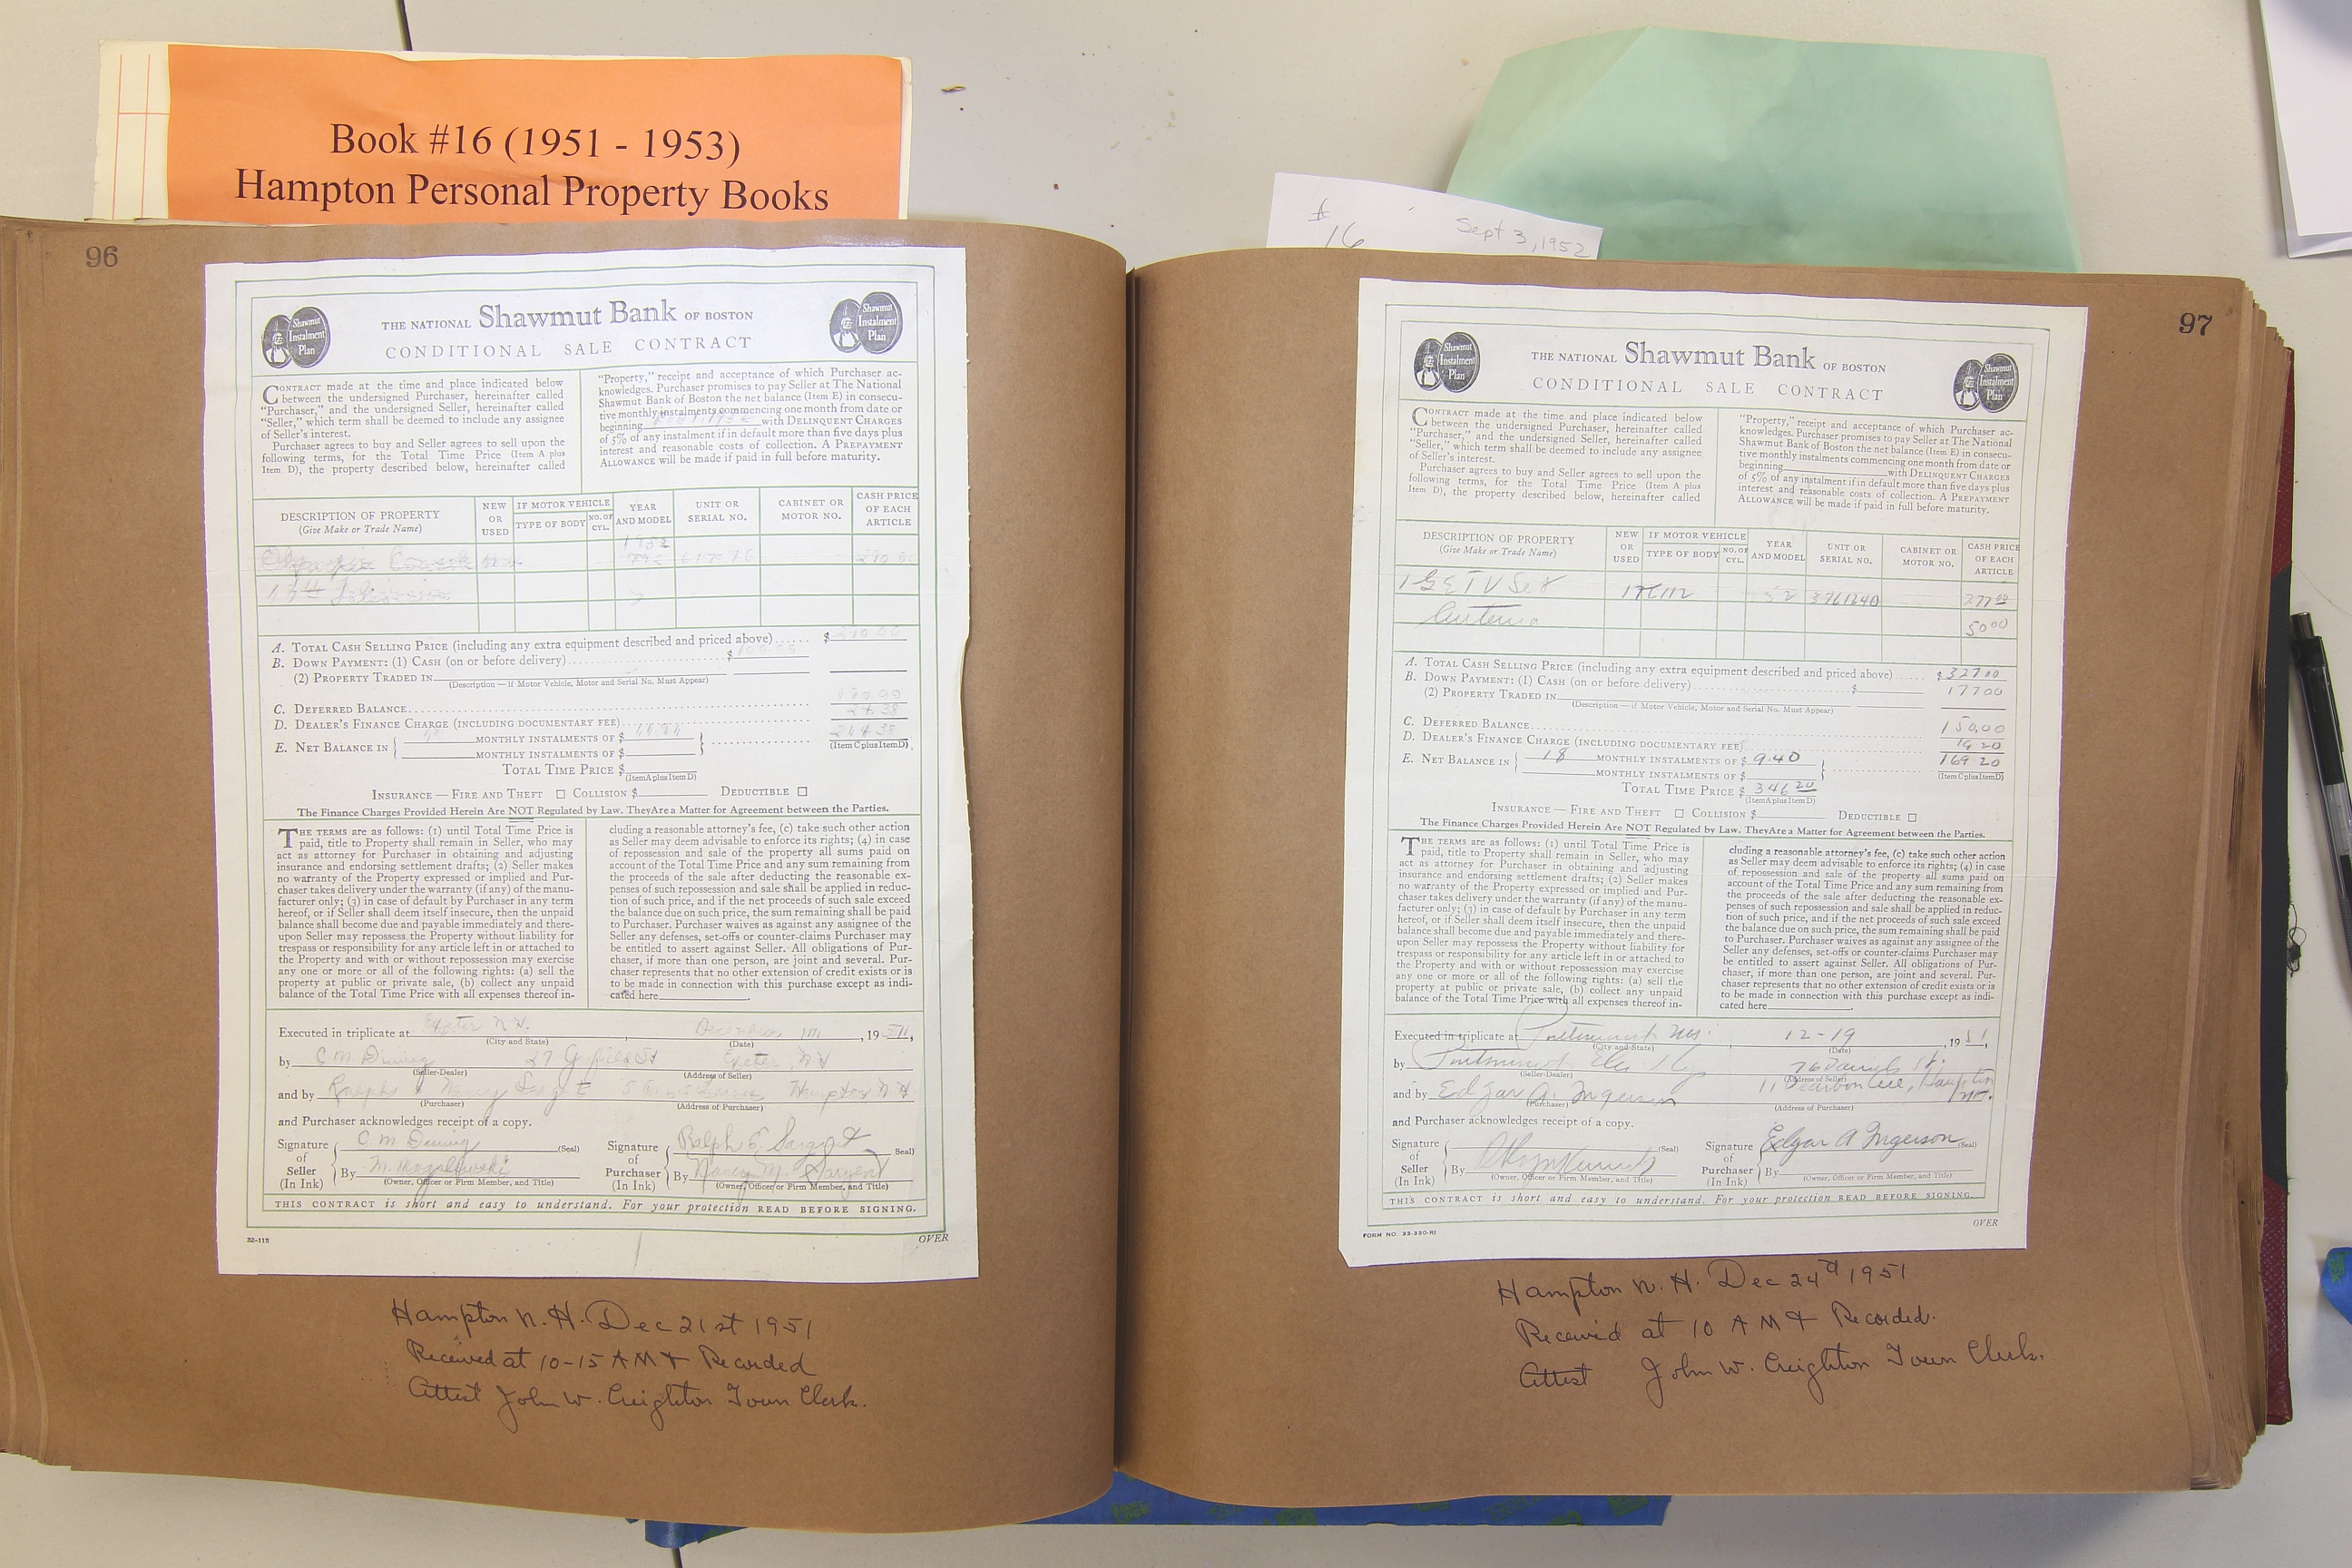 Book #16 (1951 - 1953)
Hampton Personal Property Books
#
16
Sept 3, 1952
96
Shawmut
Instalment
Plan
THE NATIONAL Shawmut Bank OF BOSTON
CONDITIONAL SALE CONTRACT
Shawmut
Instalment
Plan
CONTRACT made at the time and place indicated below
between the undersigned Purchaser, hereinafter called
"Purchaser," and the undersigned Seller, hereinafter called
"Seller," which term shall be deemed to include any assignee
of Seller's interest.
Purchaser agrees to buy and Seller agrees to sell upon the
following terms, for the Total Time Price (Item A plus
Item D), the property described below, hereinafter called
"Property," receipt and acceptance of which Purchaser ac-
knowledges. Purchaser promises to pay Seller at The National
Shawmut Bank of Boston the net balance (Item E) in consecu-
tive monthly instalments commencing one month from date or
beginning with DELINQUENT CHARGES
of 5% of any instalment if in default more than five days plus
interest and reasonable costs of collection. A PREPAYMENT
ALLOWANCE will be made if paid in full before maturity.
DESCRIPTION OF PROPERTY
(Give Make or Trade Name)
NEW
OR
USED
IF MOTOR VEHICLE
TYPE OF BODY
NO. OF
CYL.
YEAR
AND MODEL
UNIT OR
SERIAL NO.
CABINET OR
MOTOR NO.
CASH PRICE
OF EACH
ARTICLE
1952
Olympic Console New
A. TOTAL CASH SELLING PRICE (including any extra equipment described and priced above)...... $
B. DOWN PAYMENT: (1) CASH (on or before delivery)........ $
(2) PROPERTY TRADED IN
(Description — if Motor Vehicle, Motor and Serial No. Must Appear)
C. DEFERRED BALANCE........
D. DEALER'S FINANCE CHARGE (INCLUDING DOCUMENTARY FEE)........ 24.38
E. NET BALANCE IN { MONTHLY INSTALMENTS OF $ } ........ 214.38
MONTHLY INSTALMENTS OF $ (Item C plus Item D)
TOTAL TIME PRICE $
(Item A plus Item D)
INSURANCE — FIRE AND THEFT ☐ COLLISION $ DEDUCTIBLE ☐
The Finance Charges Provided Herein Are NOT Regulated by Law. They Are a Matter for Agreement between the Parties.
THE TERMS are as follows: (1) until Total Time Price is
paid, title to Property shall remain in Seller, who may
act as attorney for Purchaser in obtaining and adjusting
insurance and endorsing settlement drafts; (2) Seller makes
no warranty of the Property expressed or implied and Pur-
chaser takes delivery under the warranty (if any) of the manu-
facturer only; (3) in case of default by Purchaser in any term
hereof, or if Seller shall deem itself insecure, then the unpaid
balance shall become due and payable immediately and there-
upon Seller may repossess the Property without liability for
trespass or responsibility for any article left in or attached to
the Property and with or without repossession may exercise
any one or more or all of the following rights: (a) sell the
property at public or private sale, (b) collect any unpaid
balance of the Total Time Price with all expenses thereof in-
cluding a reasonable attorney's fee, (c) take such other action
as Seller may deem advisable to enforce its rights; (4) in case
of repossession and sale of the property all sums paid on
account of the Total Time Price and any sum remaining from
the proceeds of the sale after deducting the reasonable ex-
penses of such repossession and sale shall be applied in reduc-
tion of such price, and if the net proceeds of such sale exceed
the balance due on such price, the sum remaining shall be paid
to Purchaser. Purchaser waives as against any assignee of the
Seller any defenses, set-offs or counter-claims Purchaser may
be entitled to assert against Seller. All obligations of Pur-
chaser, if more than one person, are joint and several. Pur-
chaser represents that no other extension of credit exists or is
to be made in connection with this purchase except as indi-
cated here
Executed in triplicate at Exeter N.H. , December , 1951,
(City and State) (Date)
by C.M. Dining 27 Garfield St Exeter, N.H
(Seller-Dealer) (Address of Seller)
and by Ralph & Nancy Sargent Hampton N.H
(Purchaser) (Address of Purchaser)
and Purchaser acknowledges receipt of a copy.
Signature
of
Seller
(In Ink)
C. M. Dining (Seal)
By
(Owner, Officer or Firm Member, and Title)
Signature
of
Purchaser
(In Ink)
Ralph E. Sargent Seal)
By Nancy M. Sargent
(Owner, Officer or Firm Member, and Title)
THIS CONTRACT is short and easy to understand. For your protection READ BEFORE SIGNING.
32-115
OVER
Hampton N. H. Dec 21st 1951
Received at 10-15 AM & Recorded
Attest John W. Creighton Town Clerk.
97
Shawmut
Instalment
Plan
THE NATIONAL Shawmut Bank OF BOSTON
CONDITIONAL SALE CONTRACT
Shawmut
Instalment
Plan
CONTRACT made at the time and place indicated below
between the undersigned Purchaser, hereinafter called
"Purchaser," and the undersigned Seller, hereinafter called
"Seller," which term shall be deemed to include any assignee
of Seller's interest.
Purchaser agrees to buy and Seller agrees to sell upon the
following terms, for the Total Time Price (Item A plus
Item D), the property described below, hereinafter called
"Property," receipt and acceptance of which Purchaser ac-
knowledges. Purchaser promises to pay Seller at The National
Shawmut Bank of Boston the net balance (Item E) in consecu-
tive monthly instalments commencing one month from date or
beginning with DELINQUENT CHARGES
of 5% of any instalment if in default more than five days plus
interest and reasonable costs of collection. A PREPAYMENT
ALLOWANCE will be made if paid in full before maturity.
DESCRIPTION OF PROPERTY
(Give Make or Trade Name)
NEW
OR
USED
IF MOTOR VEHICLE
TYPE OF BODY
NO. OF
CYL.
YEAR
AND MODEL
UNIT OR
SERIAL NO.
CABINET OR
MOTOR NO.
CASH PRICE
OF EACH
ARTICLE
1 GE TV Set 52 3761240 277 00
Antenna 50 00
A. TOTAL CASH SELLING PRICE (including any extra equipment described and priced above)...... $ 327 00
B. DOWN PAYMENT: (1) CASH (on or before delivery)........ $ 177 00
(2) PROPERTY TRADED IN
(Description — if Motor Vehicle, Motor and Serial No. Must Appear)
C. DEFERRED BALANCE........ 150.00
D. DEALER'S FINANCE CHARGE (INCLUDING DOCUMENTARY FEE)........ 19 20
E. NET BALANCE IN { 18 MONTHLY INSTALMENTS OF $ 9.40 } ........ 169.20
MONTHLY INSTALMENTS OF $ (Item C plus Item D)
TOTAL TIME PRICE $ 346 20
(Item A plus Item D)
INSURANCE — FIRE AND THEFT ☐ COLLISION $ DEDUCTIBLE ☐
The Finance Charges Provided Herein Are NOT Regulated by Law. They Are a Matter for Agreement between the Parties.
THE TERMS are as follows: (1) until Total Time Price is
paid, title to Property shall remain in Seller, who may
act as attorney for Purchaser in obtaining and adjusting
insurance and endorsing settlement drafts; (2) Seller makes
no warranty of the Property expressed or implied and Pur-
chaser takes delivery under the warranty (if any) of the manu-
facturer only; (3) in case of default by Purchaser in any term
hereof, or if Seller shall deem itself insecure, then the unpaid
balance shall become due and payable immediately and there-
upon Seller may repossess the Property without liability for
trespass or responsibility for any article left in or attached to
the Property and with or without repossession may exercise
any one or more or all of the following rights: (a) sell the
property at public or private sale, (b) collect any unpaid
balance of the Total Time Price with all expenses thereof in-
cluding a reasonable attorney's fee, (c) take such other action
as Seller may deem advisable to enforce its rights; (4) in case
of repossession and sale of the property all sums paid on
account of the Total Time Price and any sum remaining from
the proceeds of the sale after deducting the reasonable ex-
penses of such repossession and sale shall be applied in reduc-
tion of such price, and if the net proceeds of such sale exceed
the balance due on such price, the sum remaining shall be paid
to Purchaser. Purchaser waives as against any assignee of the
Seller any defenses, set-offs or counter-claims Purchaser may
be entitled to assert against Seller. All obligations of Pur-
chaser, if more than one person, are joint and several. Pur-
chaser represents that no other extension of credit exists or is
to be made in connection with this purchase except as indi-
cated here
Executed in triplicate at Portsmouth , 12-19 , 1951,
(City and State) (Date)
by Portsmouth 76 Daniels St.
(Seller-Dealer) (Address of Seller)
and by Edgar A. Ingerson 11 Dearborn Ave, Hampton
(Purchaser) (Address of Purchaser)
and Purchaser acknowledges receipt of a copy.
Signature
of
Seller
(In Ink)
(Seal)
By
(Owner, Officer or Firm Member, and Title)
Signature
of
Purchaser
(In Ink)
Edgar A Ingerson (Seal)
By
(Owner, Officer or Firm Member, and Title)
THIS CONTRACT is short and easy to understand. For your protection READ BEFORE SIGNING.
OVER
FORM NO. 33-330-RI
Hampton N. H. Dec 24th 1951
Received at 10 AM & Recorded.
Attest John W. Creighton Town Clerk.